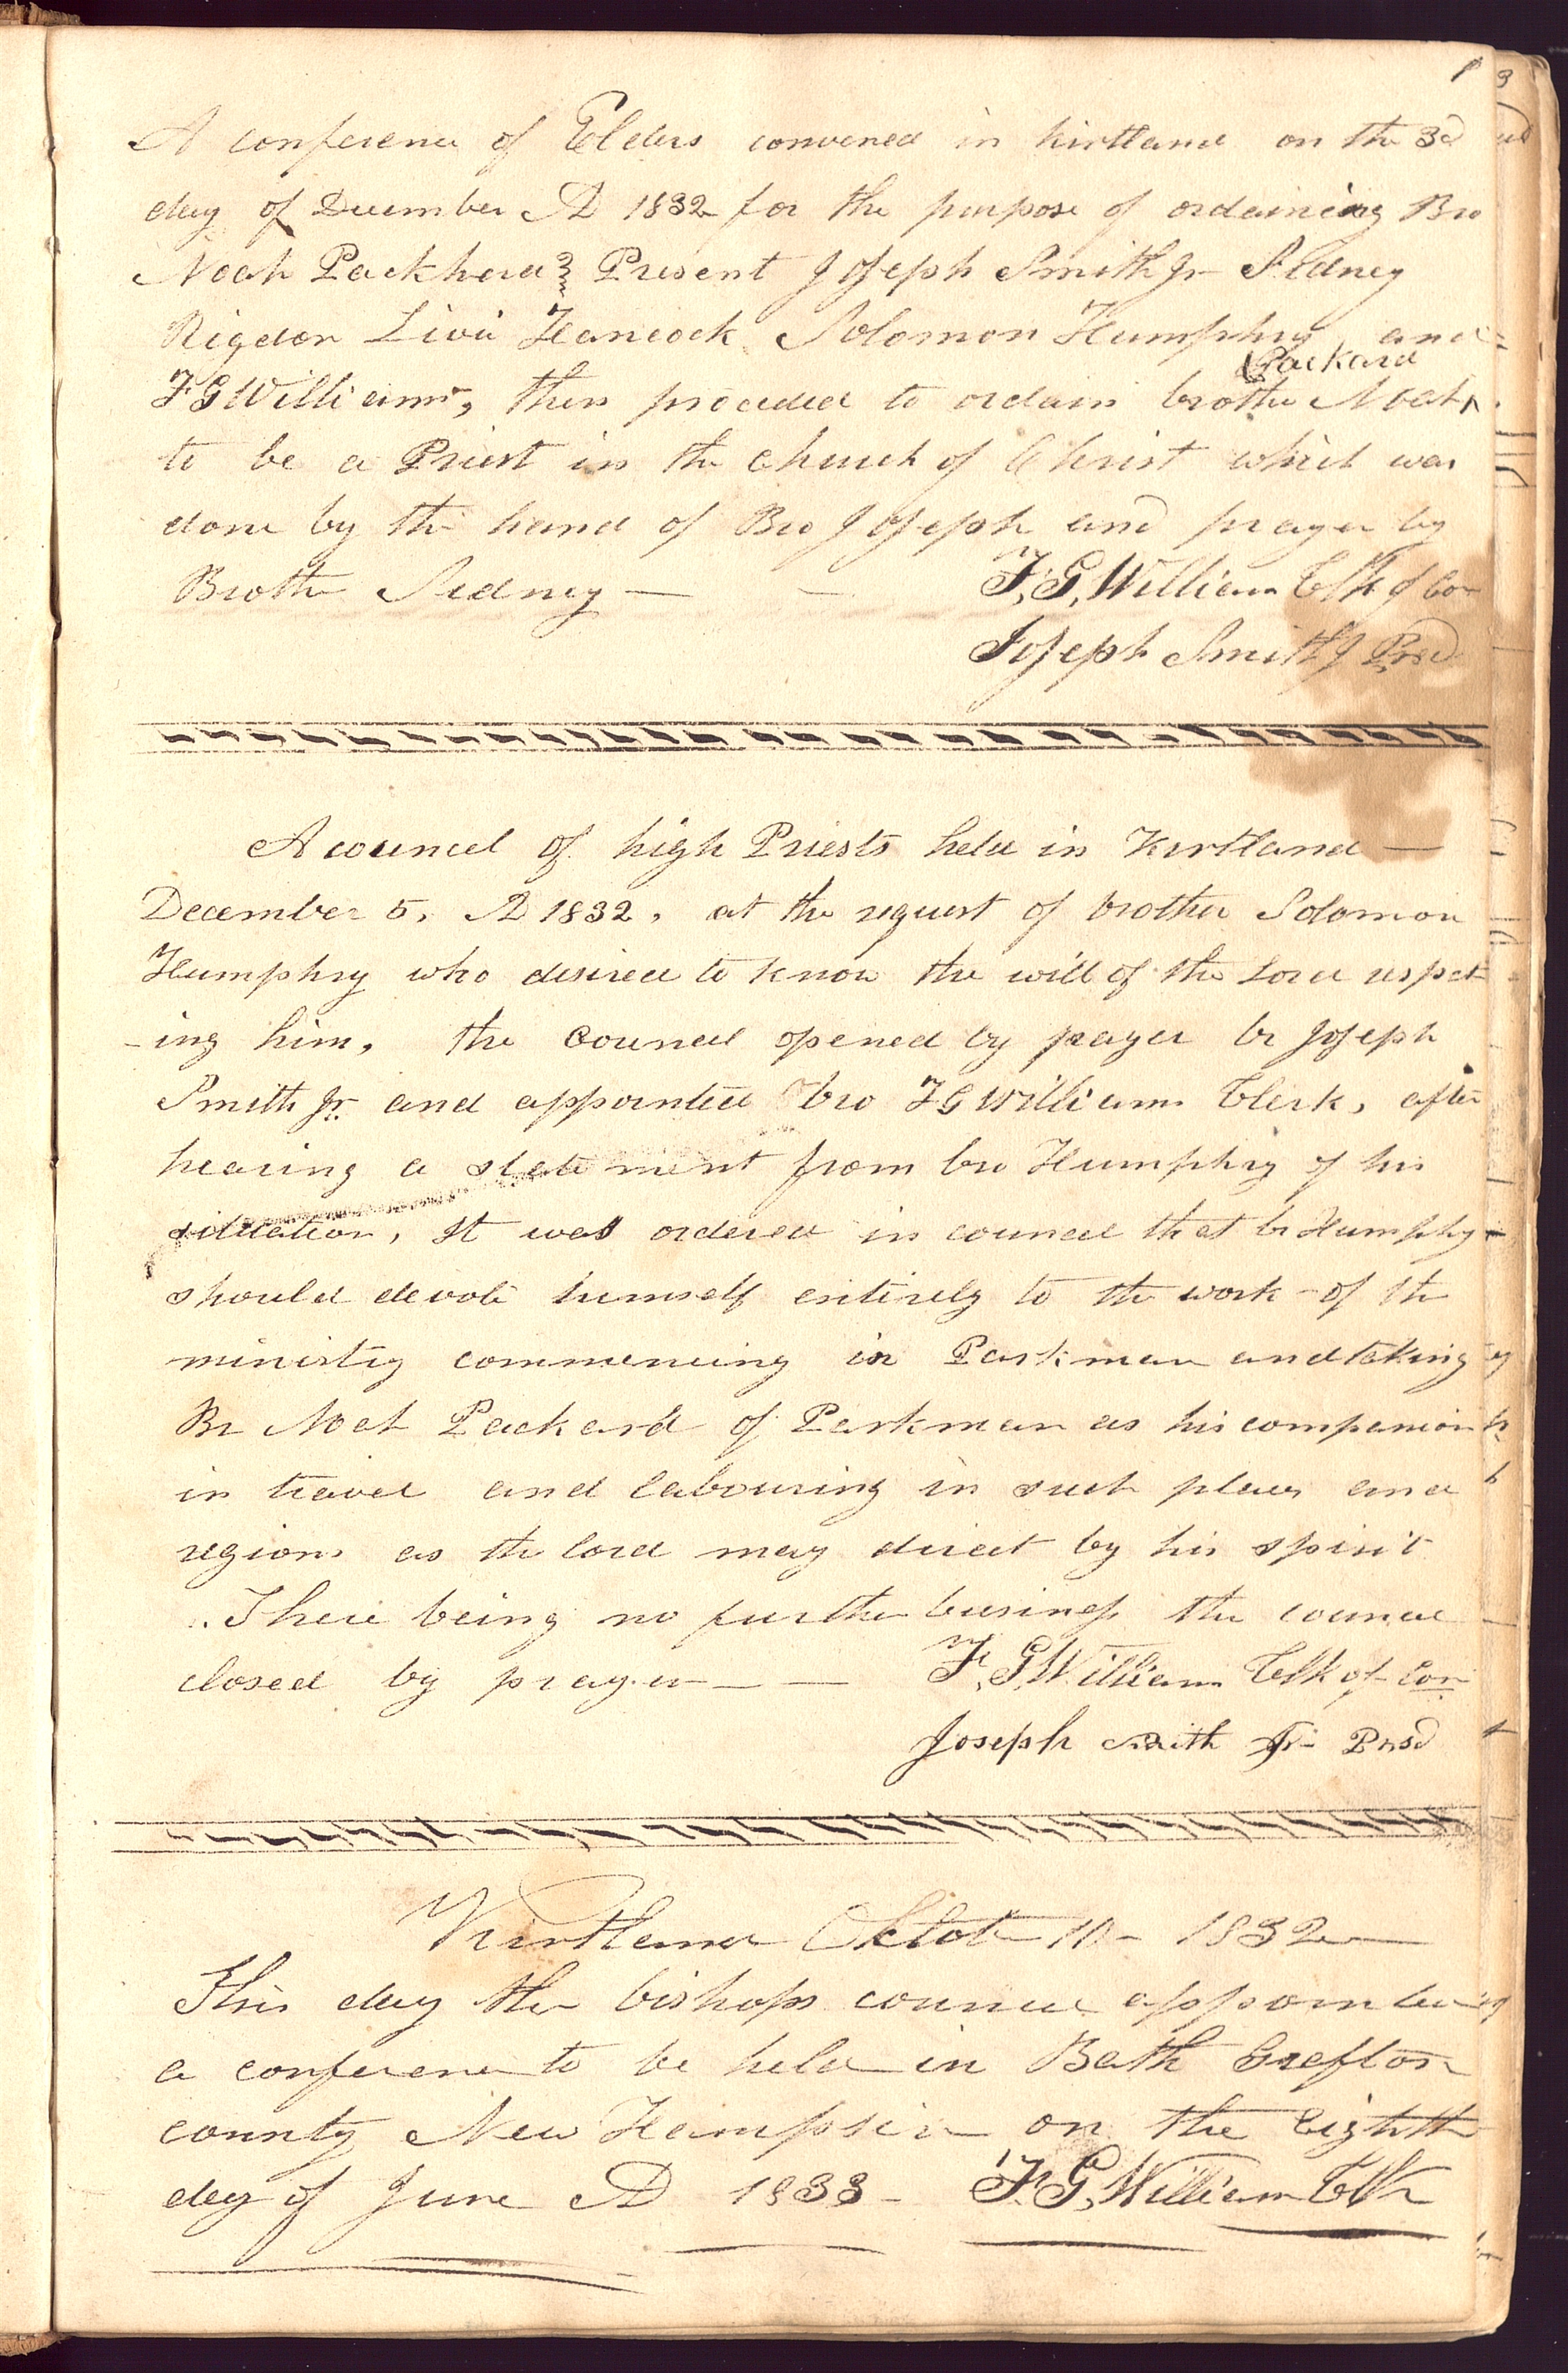 1
A conference of Elders convened in Kirtland on the 3d
day of December AD 1832 for the purpose of ordaining Bro
Noah Packherd Present Joseph Smith Jr Sidney
Rigdon Livi Hancock Solomon Humphry and
Packard
F G Williams, then proceded to ordain brother Noah ^
to be a Priest in the church of Christ which was
done by the hand of Bro Joseph and prayer by
Brother Sidney — — F. G. Williams Clk of Con
Joseph Smith J Pred
A council of high Priests held in Kirtland —
December 5. AD 1832, at the request of brother Solomon
Humphry who desired to know the will of the Lord respect
-ing him, the council opened by prayer br Joseph
Smith Jr. and appointed bro F G Williams Clerk, after
hearing a statement from bro Humphry of his
situation, It was ordered in council that br Humphry
should devote himself entirely to the work of the
ministry commencing in Parkman and taking
Br Noah Packard of Parkman as his companion
in travel and labouring in such places and
regions as the lord may direct by his spirit
There being no further business the council
closed by prayer — — F. G. Williams Clk of Con
Joseph Smith Jr Presd
Kirtland Octob 10 - 1832
This day the bishops council appointed
a conference to be held in Bath Grafton
county New Hampsire on the Eighth
day of June AD 1833 - F. G. Williams Clk